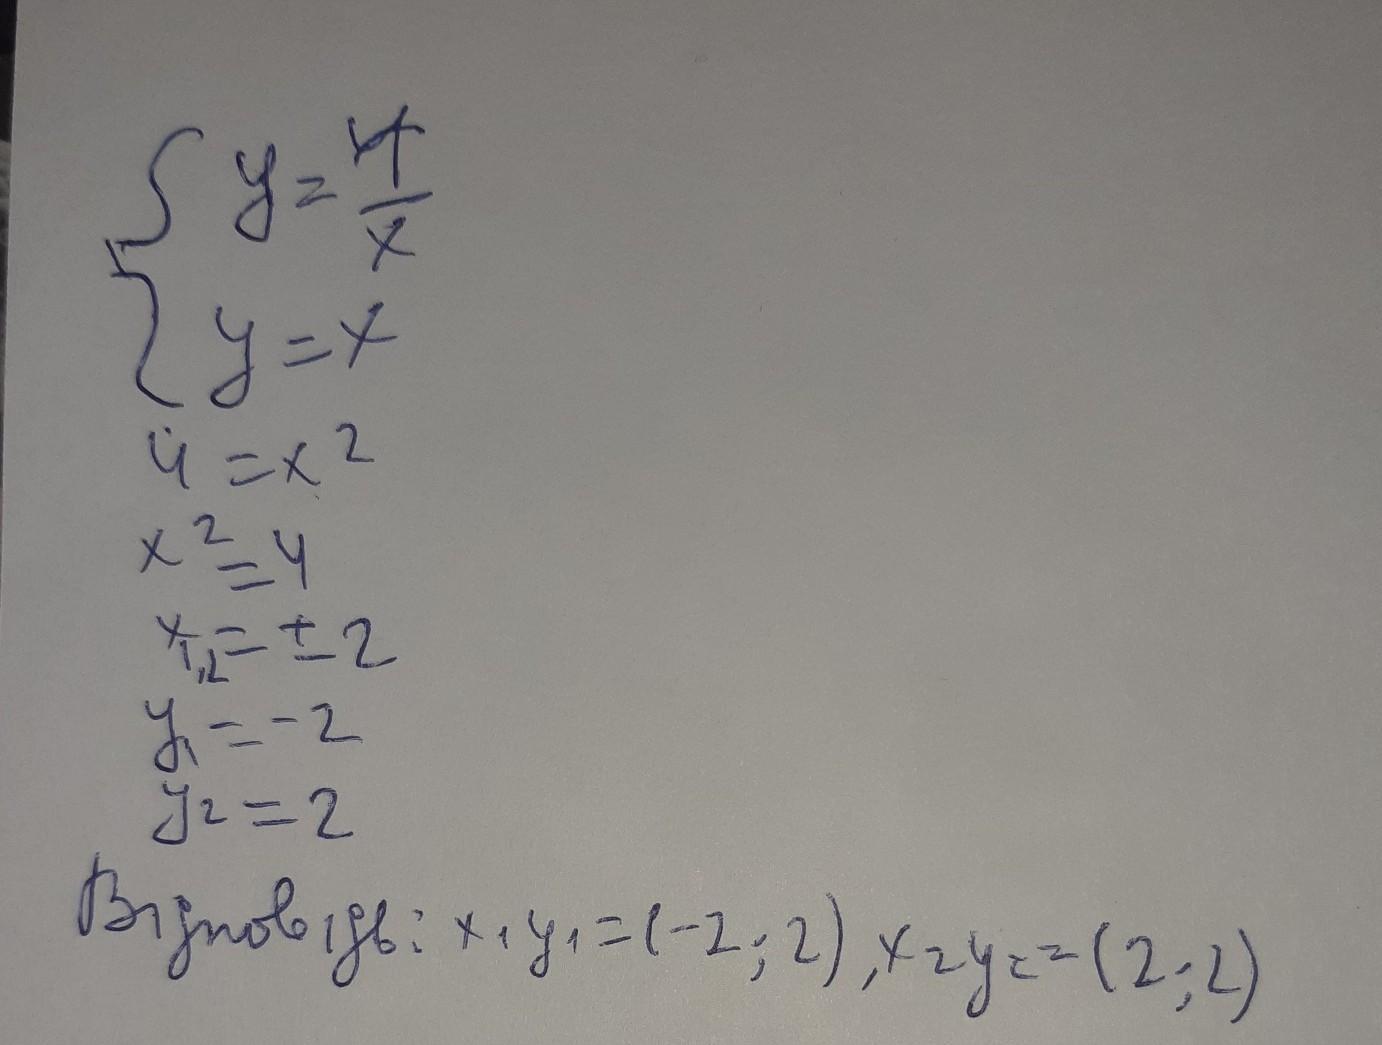 { y = 4/x
y = x
4 = x²
x² = 4
x₁,₂ = ± 2
y₁ = -2
y₂ = 2
Відповідь: x₁y₁ = (-2; 2), x₂y₂ = (2; 2)